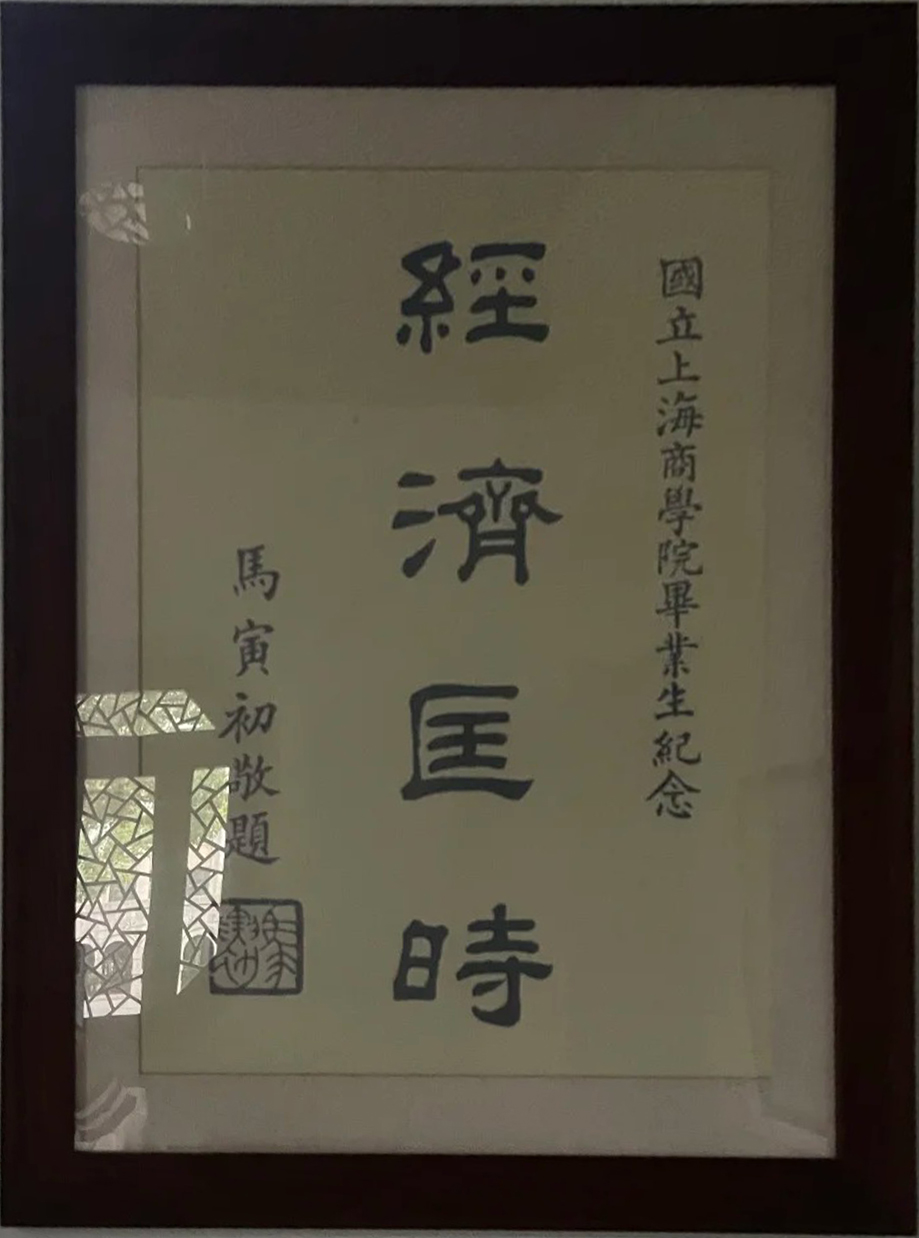 國立上海商學院畢業生紀念
經濟匡時
馬寅初敬題